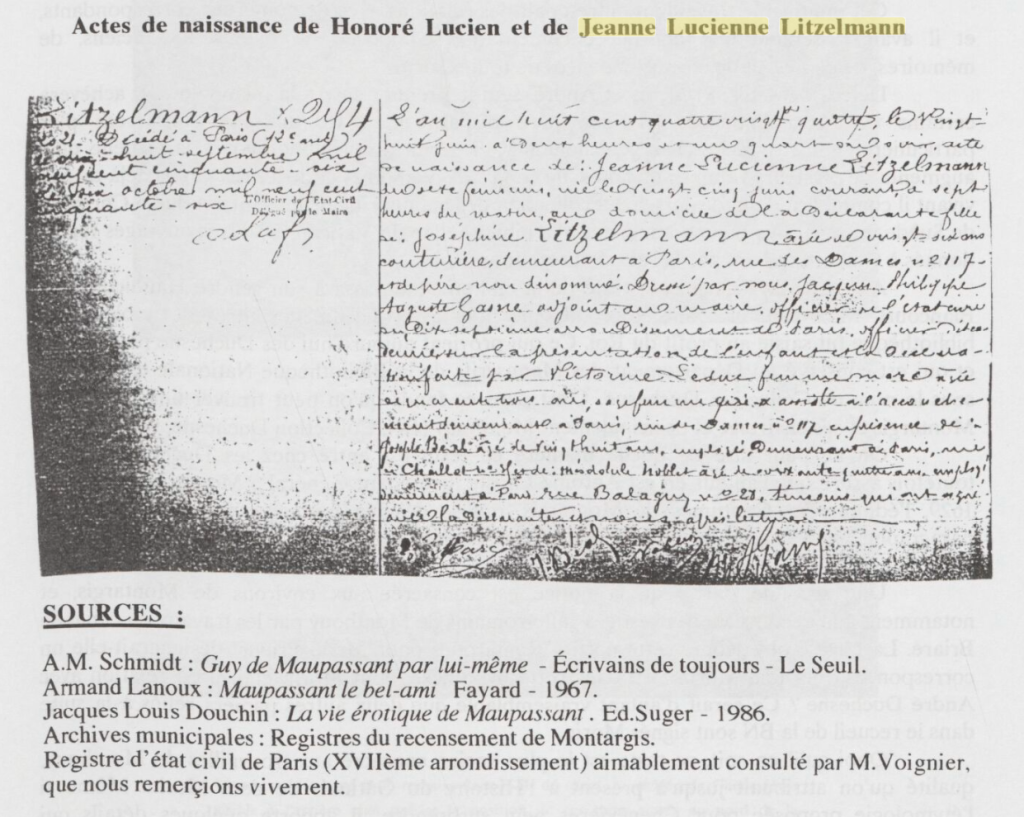 Actes de naissance de Honoré Lucien et de Jeanne Lucienne Litzelmann
Litzelmann × 254
Décédé à Paris (12e arr)
le dix-huit septembre mil
neuf cent cinquante-six
octobre mil neuf cent
cinquante-six
L'Officier de l'Etat-Civil
Délégué par le Maire
L'an mil huit cent quatre vingt quatre, le vingt-
huit juin à deux heures et un quart du soir, acte
de naissance de: Jeanne Lucienne Litzelmann
du sexe féminin, née le vingt cinq juin courant à sept
heures du matin, au domicile de la déclarante fille
de: Joséphine Litzelmann âgée de vingt-six ans
couturière, demeurant à Paris, rue des Dames no 117
et de père non dénommé. Dressé par nous, Jacques Philippe
Auguste adjoint au maire, officier de l'état civil
du Dix septième arrondissement de Paris, officier
sur la présentation de l'enfant et la
faite par Victorine Leduc femme âgée
de ans, sage femme qui a assisté à l'accouche-
ment demeurant à Paris, rue des Dames no 117, en présence de:
Joseph âgé de vingt huit ans, employé, demeurant à Paris, rue
Noblet âgé de soixante quatre ans
demeurant à Paris rue Balagny no 28, témoins qui ont signé
avec la déclarante et nous après lecture.
SOURCES :
A.M. Schmidt : Guy de Maupassant par lui-même - Écrivains de toujours - Le Seuil.
Armand Lanoux : Maupassant le bel-ami Fayard - 1967.
Jacques Louis Douchin : La vie érotique de Maupassant . Ed.Suger - 1986.
Archives municipales : Registres du recensement de Montargis.
Registre d'état civil de Paris (XVIIème arrondissement) aimablement consulté par M.Voignier,
que nous remerçions vivement.